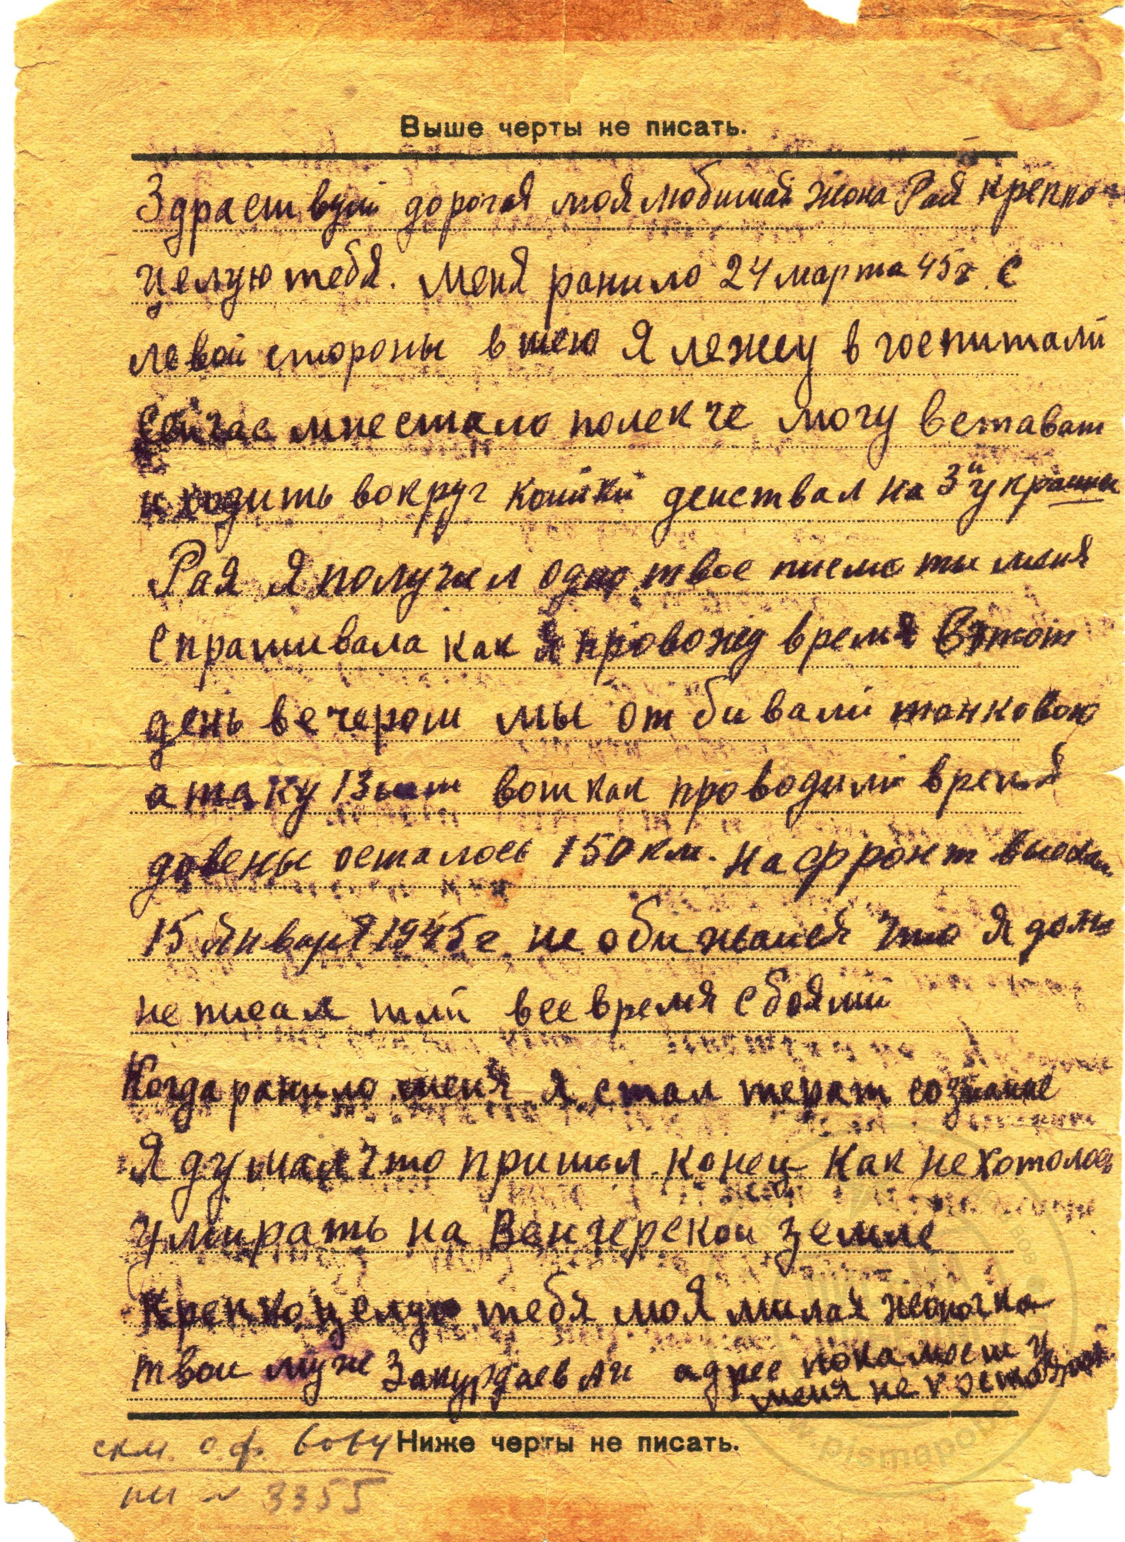 Выше черты не писать.
Здраствуй дорогая моя любимая жона Рая крепко
целую тебя. меня ранило 24 марта 45г. С
левой стороны в шею Я лежу в госпитали
сейчас мне стало полекче могу встават
и ходить вокруг койки деиствал на 3й украины
Рая Я получил одно твое писмо ты меня
спрашивала как Я провожу время В тот
день вечером мы отбивали танковою
атаку 13 вот как проводили время
до вены осталось 150 км. на фронт выехал
15 Января 1945г не обижайся что Я
не писал шли все время с боями
Когда ранило меня Я стал терат сознание
Я думал что пришол конец как не хотолось
умирать на Венгерской земле
Крепко целую тебя моя милая жоночка
твои муж Закурдаев Ан адрес пока моеи у
меня не
Ниже черты не писать.
скм. о.ф. 6064
пи № 3355
www.pismapobedy